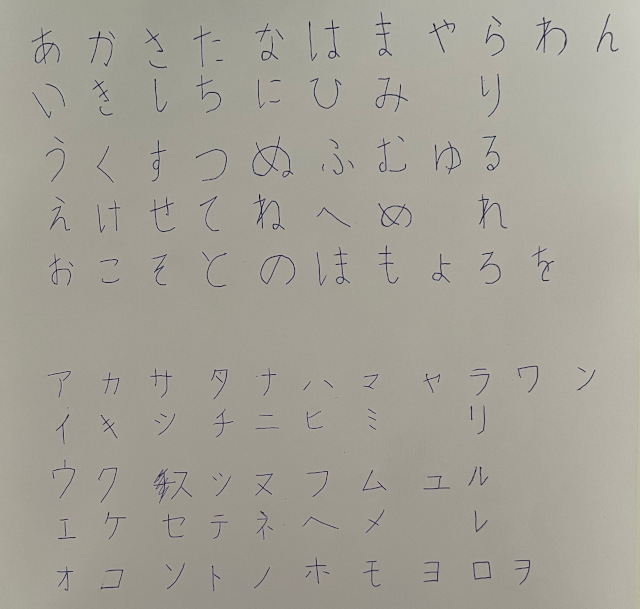 あ か さ た な は ま や ら わ ん
い き し ち に ひ み り
う く す つ ぬ ふ む ゆ る
え け せ て ね へ め れ
お こ そ と の ほ も よ ろ を
ア カ サ タ ナ ハ マ ヤ ラ ワ ン
イ キ シ チ ニ ヒ ミ リ
ウ ク ス ツ ヌ フ ム ユ ル
エ ケ セ テ ネ ヘ メ レ
オ コ ソ ト ノ ホ モ ヨ ロ ヲ